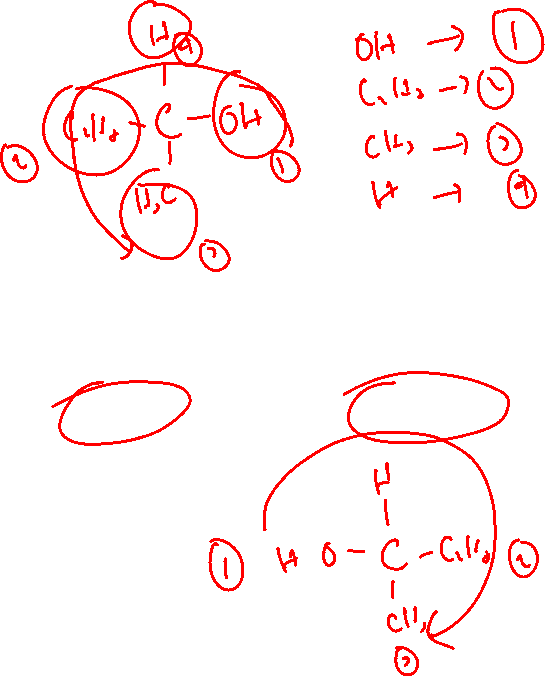 H 4
C₂H₅ - C - OH
2 1
H₃C
3
OH → 1
C₂H₅ → 2
CH₃ → 3
H → 4
H
1 H O - C - C₂H₅ 2
CH₃
3